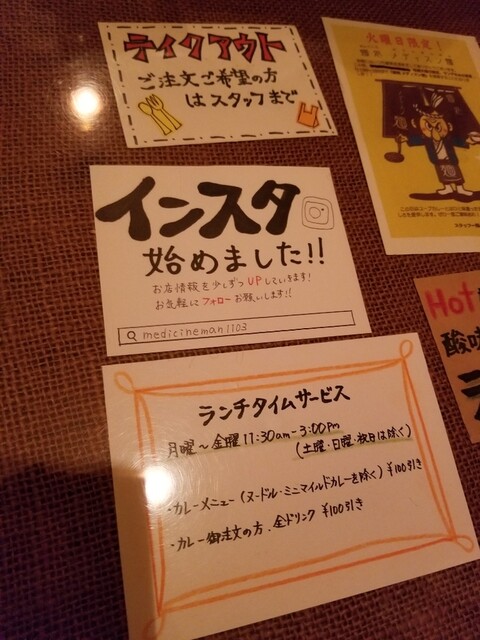 テイクアウト
ご注文ご希望の方
はスタッフまで
火曜日限定!
インスタ
始めました!!
お店情報を少しずつUPしていきます!
お気軽にフォローお願いします!!
medicineman1103
Hot
酸味
ランチタイムサービス
月曜〜金曜 11:30am-3:00pm
(土曜・日曜・祝日は除く)
・カレーメニュー(ヌードル・ミニマイルドカレーを除く)¥100引き
・カレー御注文の方、全ドリンク ¥100引き